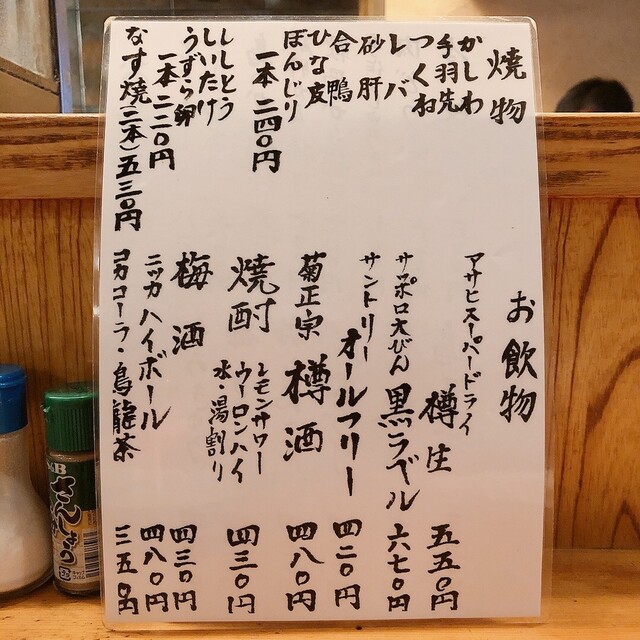 焼物
かしわ
手羽先
つくね
レバ
砂肝
合鴨
ひな皮
ぼんじり
一本 二四〇円
ししとう
しいたけ
うずら卵
一本 二二〇円
なす焼(二本)五三〇円
お飲物
アサヒスーパードライ
樽生 五五〇円
サッポロ大びん
黒ラベル 六七〇円
サントリー
オールフリー 四二〇円
菊正宗 樽酒 四八〇円
焼酎 レモンサワー
ウーロンハイ
水・湯割り 四三〇円
梅酒 四三〇円
ニッカハイボール 四八〇円
コカコーラ・烏龍茶 三五〇円
S&B
さんしょう